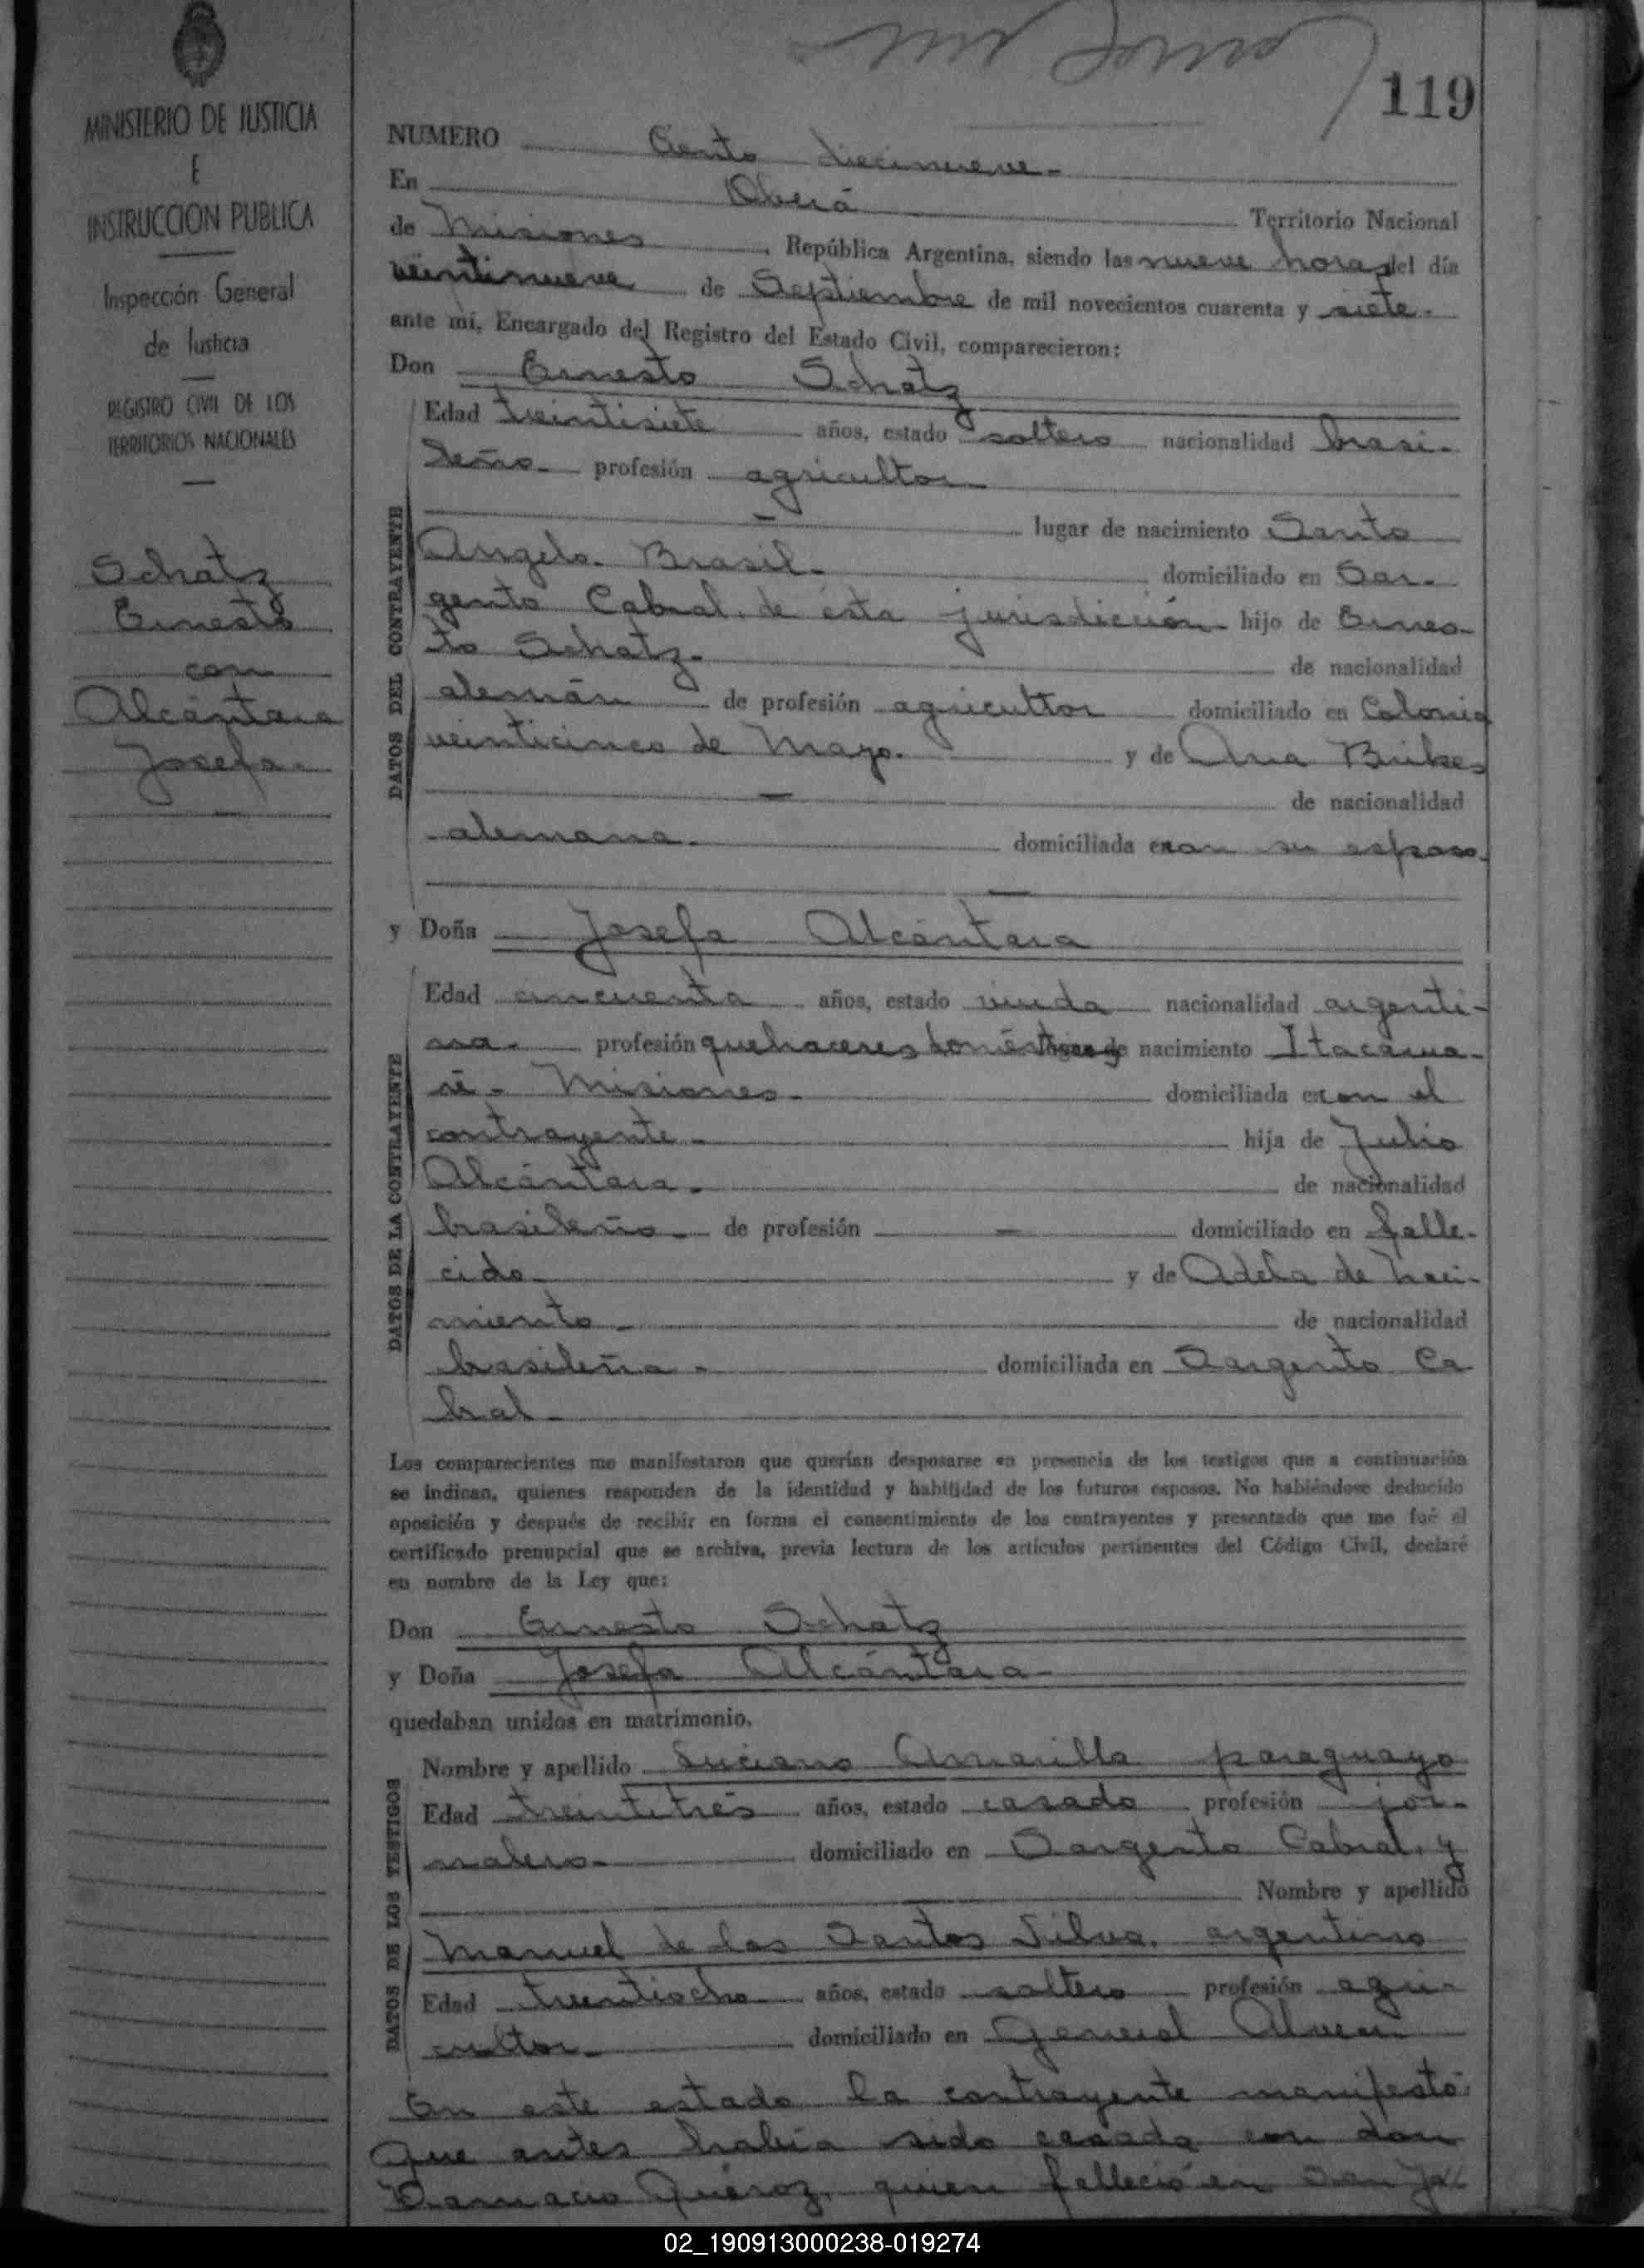 119
MINISTERIO DE JUSTICIA
E
INSTRUCCION PUBLICA
Inspección General
de Justicia
REGISTRO CIVIL DE LOS
TERRITORIOS NACIONALES
Schatz
Ernesto
con
Alcántara
Josefa.
NUMERO Ciento diecinueve-
En Oberá Territorio Nacional
de Misiones, República Argentina, siendo las nueve horas del día
veintinueve de Septiembre de mil novecientos cuarenta y siete-
ante mí, Encargado del Registro del Estado Civil, comparecieron:
Don Ernesto Schatz
DATOS DEL CONTRAYENTE
Edad treintisiete años, estado soltero nacionalidad brasi-
leño- profesión agricultor-
- lugar de nacimiento Santo
Angelo. Brasil- domiciliado en Sar-
gento Cabral, de ésta jurisdicción- hijo de Ernes-
to Schatz- de nacionalidad
alemán de profesión agricultor domiciliado en Colonia
veinticinco de Mayo. y de Ana
- de nacionalidad
alemana. domiciliada en con su esposo.
-
y Doña Josefa Alcántara
DATOS DE LA CONTRAYENTE
Edad cincuenta años, estado viuda nacionalidad argenti-
na- profesión quehaceres domésticos lugar de nacimiento Itacarua-
ré- Misiones- domiciliada en con el
contrayente- hija de Julio
Alcántara- de nacionalidad
brasileño- de profesión - domiciliado en falle-
cido- y de Adela de Naci-
miento- de nacionalidad
brasileña- domiciliada en Sargento Ca-
bral-
Los comparecientes me manifestaron que querían desposarse en presencia de los testigos que a continuación
se indican, quienes responden de la identidad y habilidad de los futuros esposos. No habiéndose deducido
oposición y después de recibir en forma el consentimiento de los contrayentes y presentado que me fué el
certificado prenupcial que se archiva, previa lectura de los artículos pertinentes del Código Civil, declaré
en nombre de la Ley que:
Don Ernesto Schatz
y Doña Josefa Alcántara-
quedaban unidos en matrimonio.
DATOS DE LOS TESTIGOS
Nombre y apellido Luciano Amarilla paraguayo
Edad treintitrés años, estado casado profesión jor-
nalero- domiciliado en Sargento Cabral, y
Nombre y apellido
Manuel de los Santos Silva, argentino
Edad treintiocho años, estado soltero profesión agri-
cultor- domiciliado en General Alvear
En este estado la contrayente manifestó:
Que antes había sido casada con don
Queroz, quien falleció en San Ja
02_190913000238-019274